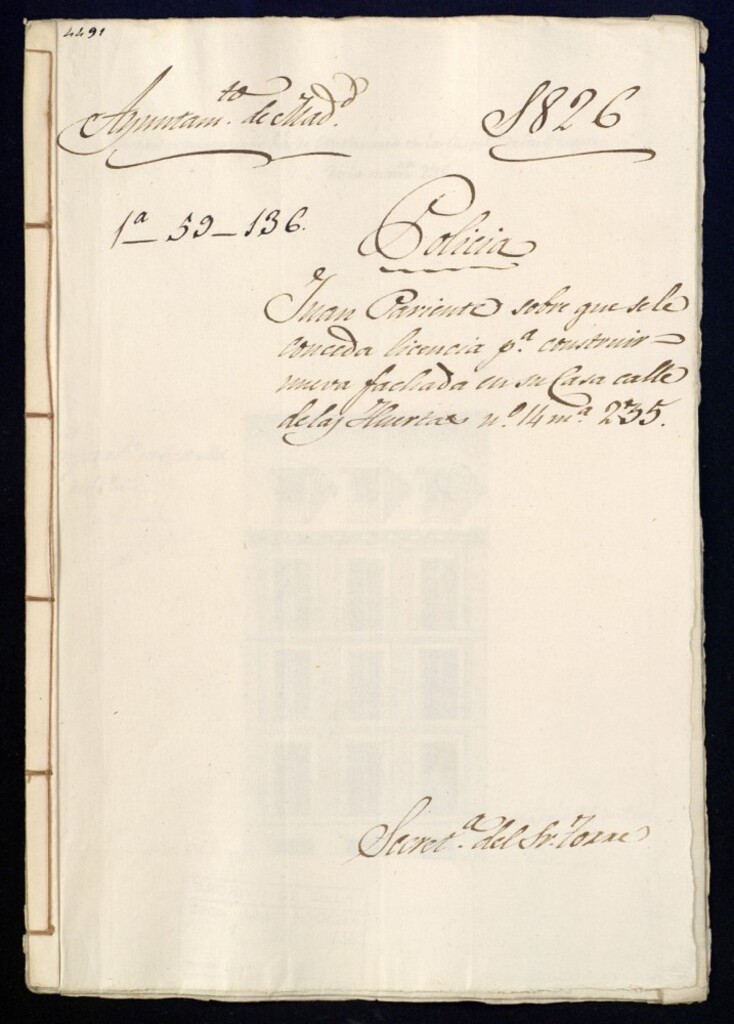 4491
Ayuntam.to de Mad.d
1826
1a 59-136.
Policia
Juan Pariente sobre que se le
conceda licencia p.a construir=
nueva fachada en su Casa calle
de las Huertas n.o 14 m.a 235.
Secret.a del Sr. Torre